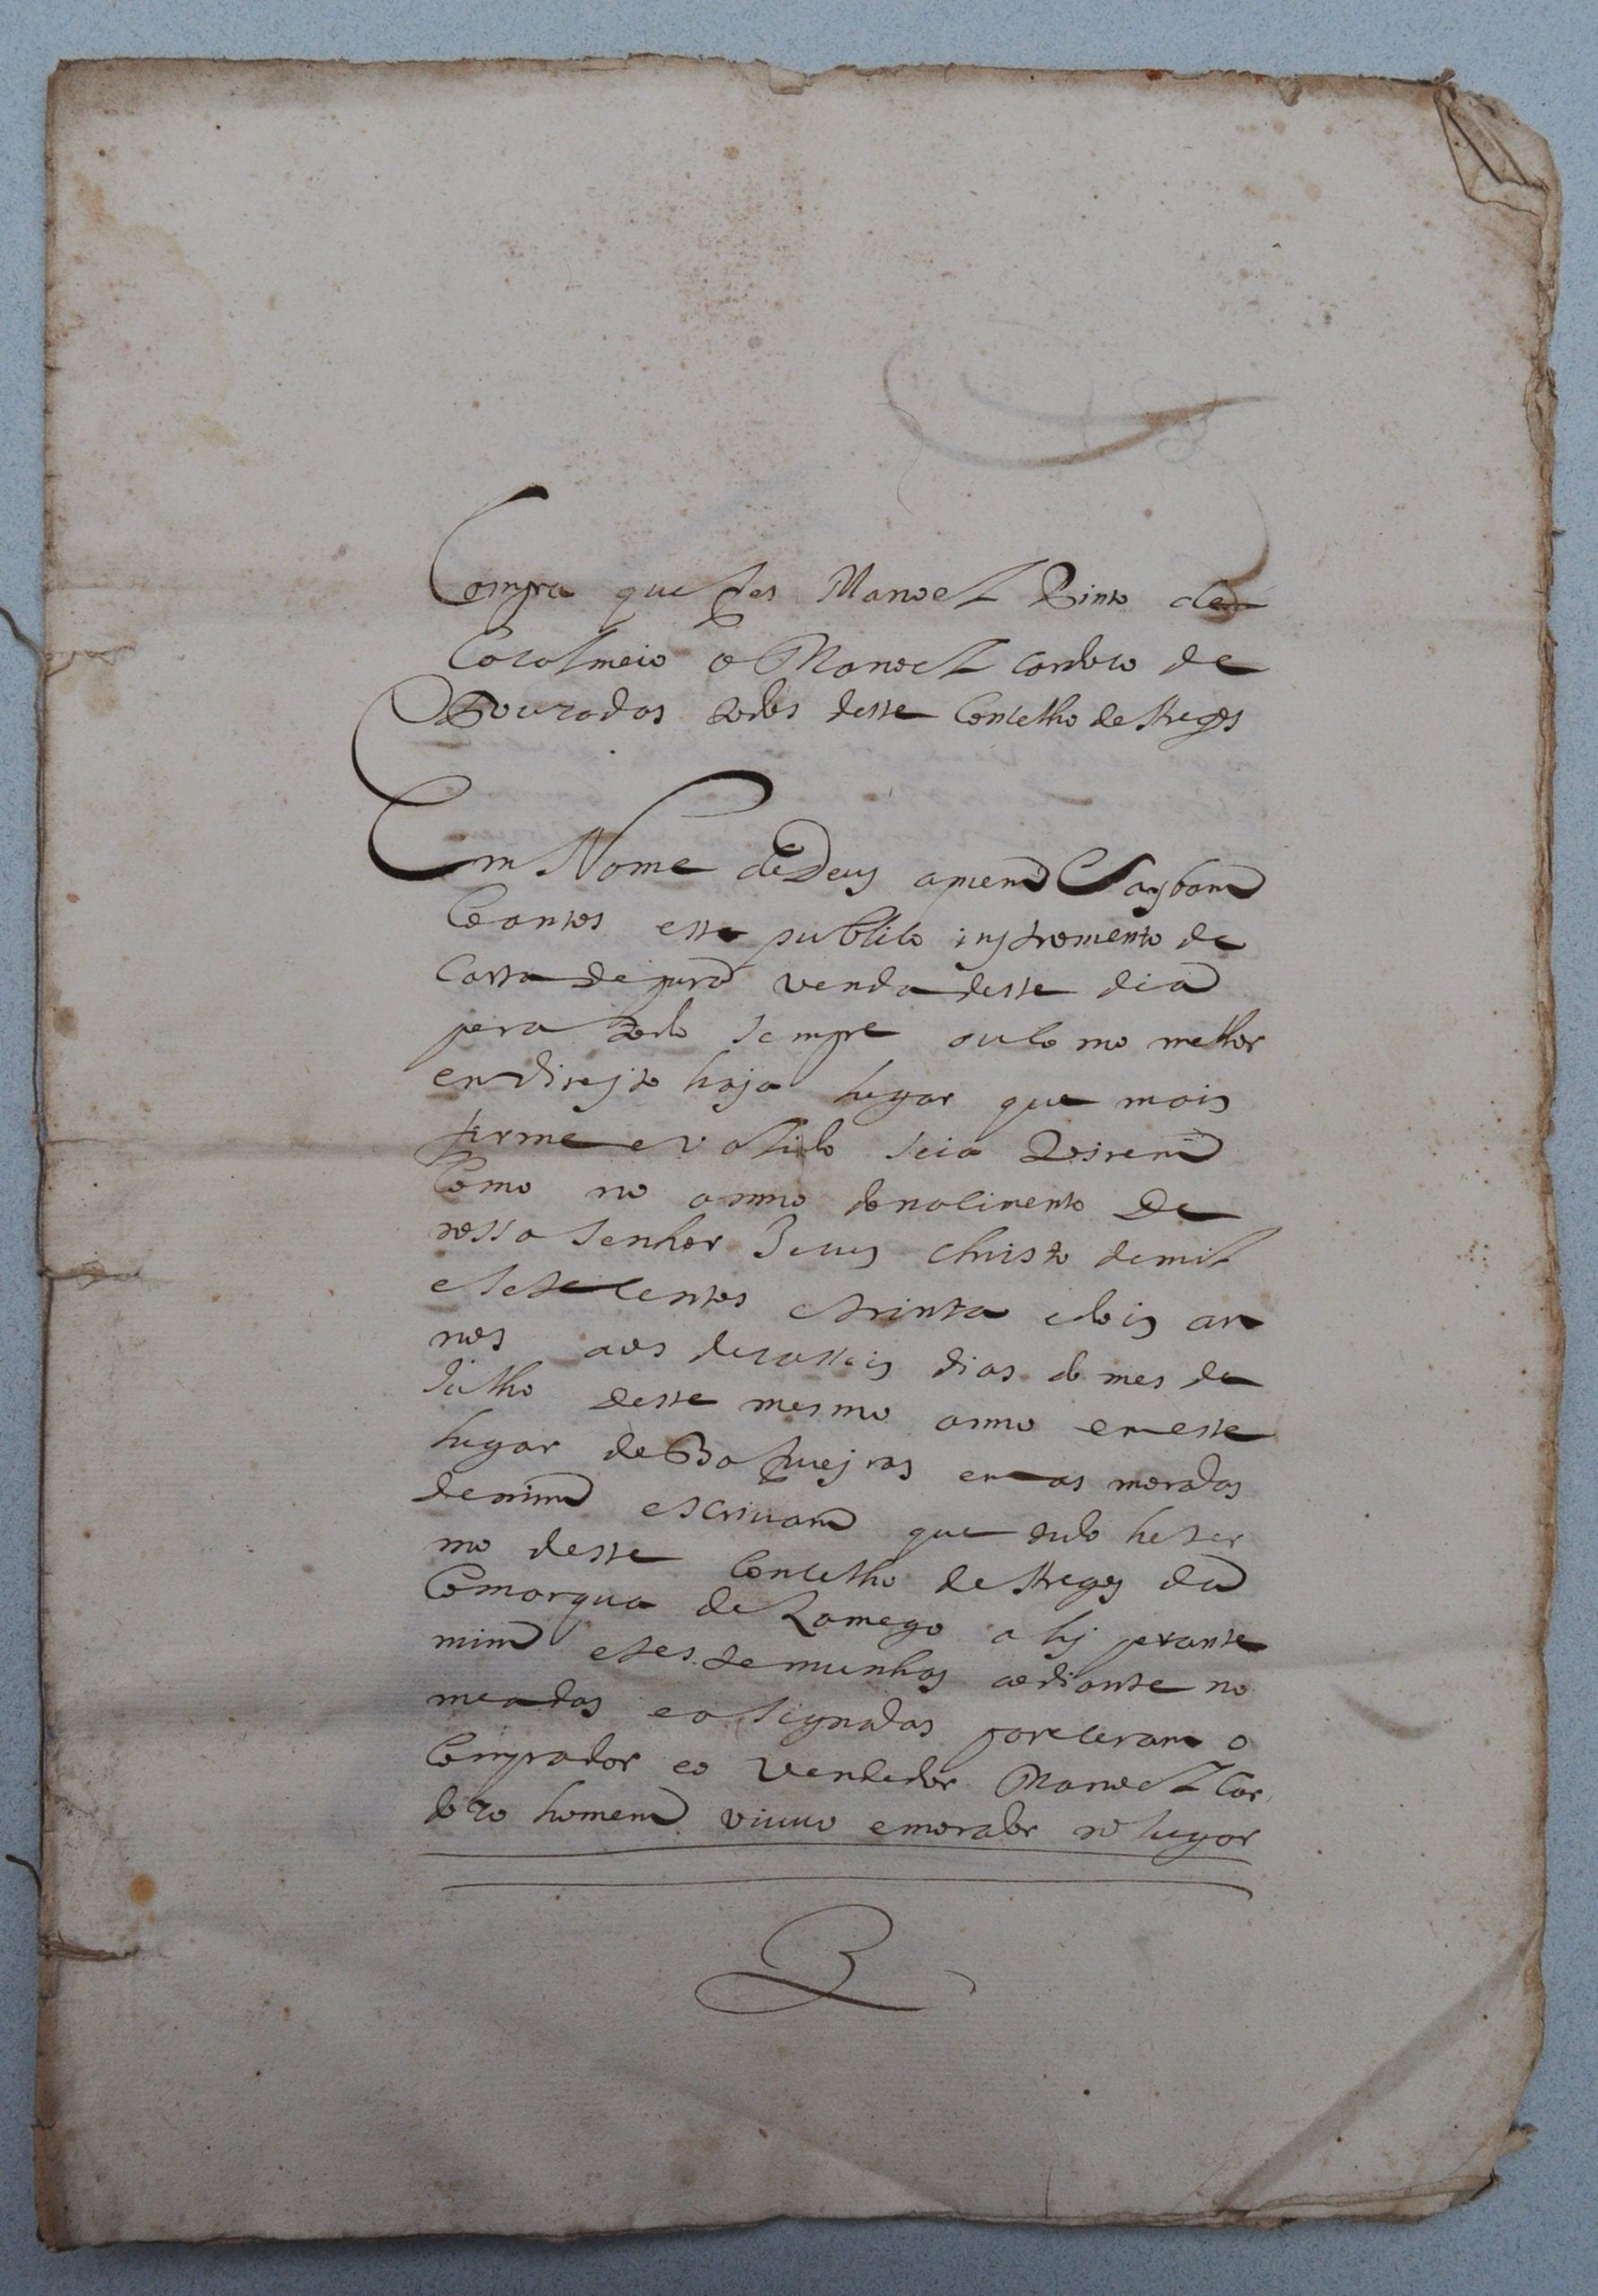 Compra que fes Manoel Pinto de
Cotolmeio a Manoel Cordeiro de
Douradas todos deste Concelho de Aregos
Em Nome de Deus amen Saybam
Coantos este publico instromento de
Carta de pura venda deste dia
pera todo sempre ou Como melhor
en direjto haja lugar que mais
firme e valido seia Virem
Como no anno do nacimento De
nosso senhor Jesus christo de mil
e setecentos e trinta e dois an
nos aos decasseis dias do mes de
Julho deste mesmo anno em este
lugar de em as moradas
de mim escrivam que tudo he ter
mo deste Concelho de Aregos da
Comarqua de Lamego ahj perante
mim e testemunhas ao diante no
meadas e asignadas pareceram o
Comprador e o Vendedor Manoel Cor
deiro homem viuvo e morador no lugar